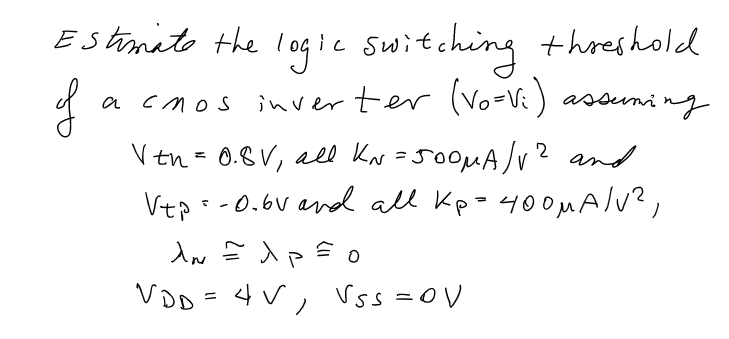 Estimate the logic switching threshold
of a cmos inverter (Vo=Vi) assuming
Vtn = 0.8V, all KN = 500μA/V² and
Vtp = -0.6V and all Kp = 400μA/V²,
λN ≅ λP ≅ 0
VDD = 4V, VSS = 0V